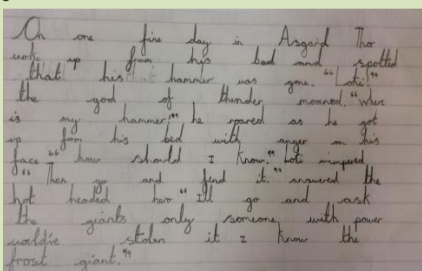 On one fine day in Asgard Thor
woke up from his bed and spotted
that his that hammer was gone. "Loki!"
the god of thunder moaned. "Where
is my hammer" he roared as he got
up from his bed with anger on his
face "how should I know." Loti
"Then go and find it." answered the
hot headed hero "Ill go and ask
the giants only someone with power
stolen it I know the
frost giant."